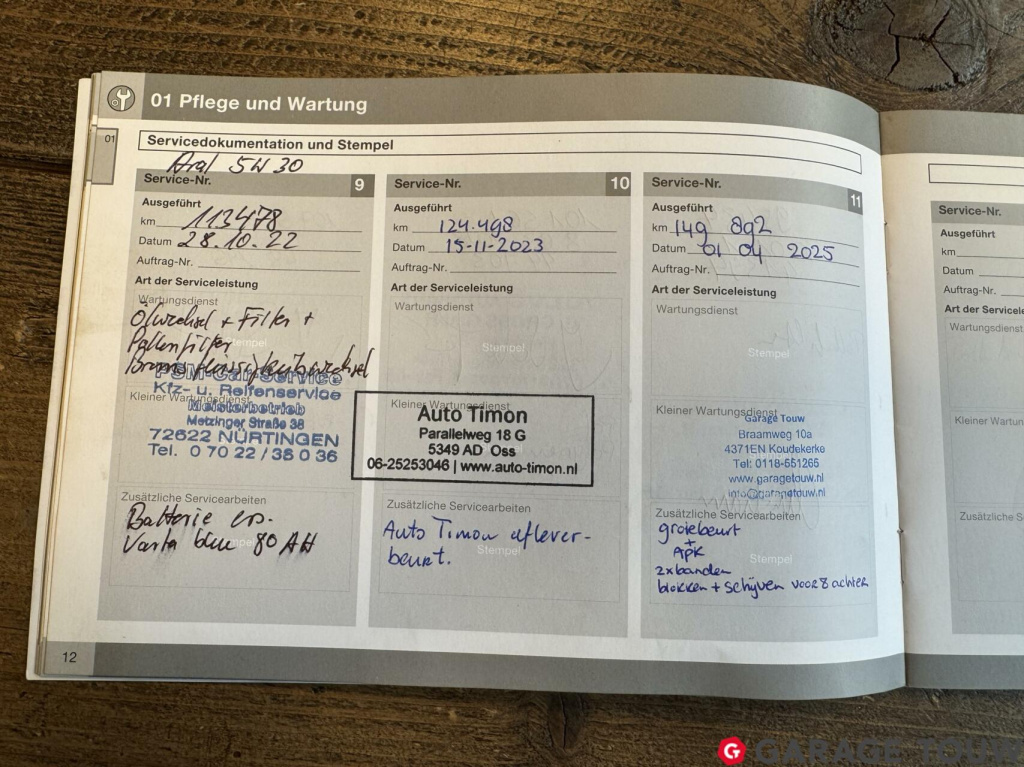 01 Pflege und Wartung
01
Servicedokumentation und Stempel
Aral 5W30
Service-Nr. 9
Ausgeführt
km 113478
Datum 28.10.22
Auftrag-Nr.
Art der Serviceleistung
Wartungsdienst
Ölwechsel + Filter +
Pollenfilter
Stempel
Bremsflüssigkeitwechsel
PSM-Car-Service
Kfz- u. Reifenservice
Kleiner Wartungsdienst
Meisterbetrieb
Metzinger Straße 38
72622 NÜRTINGEN
Tel. 0 70 22 / 38 0 36
Zusätzliche Servicearbeiten
Batterie ers.
Varta blue 80 AH
Service-Nr. 10
Ausgeführt
km 124.498
Datum 15-11-2023
Auftrag-Nr.
Art der Serviceleistung
Wartungsdienst
Stempel
Kleiner Wartungsdienst
Auto Timon
Parallelweg 18 G
5349 AD Oss
06-25253046 | www.auto-timon.nl
Zusätzliche Servicearbeiten
Auto Timon aflever-
beurt.
Stempel
Service-Nr. 11
Ausgeführt
km 149 892
Datum 01 04 2025
Auftrag-Nr.
Art der Serviceleistung
Wartungsdienst
Stempel
Kleiner Wartungsdienst
Garage Touw
Braamweg 10a
4371EN Koudekerke
Tel: 0118-551265
www.garagetouw.nl
info@garagetouw.nl
Zusätzliche Servicearbeiten
grotebeurt
+
APK
Stempel
2x banden
blokken + schijven voor & achter
Service-Nr.
Ausgeführt
km
Datum
Auftrag-Nr.
Art der Servicel
Wartungsdienst
Kleiner Wartung
Zusätzliche Se
12
GARAGE TOUW